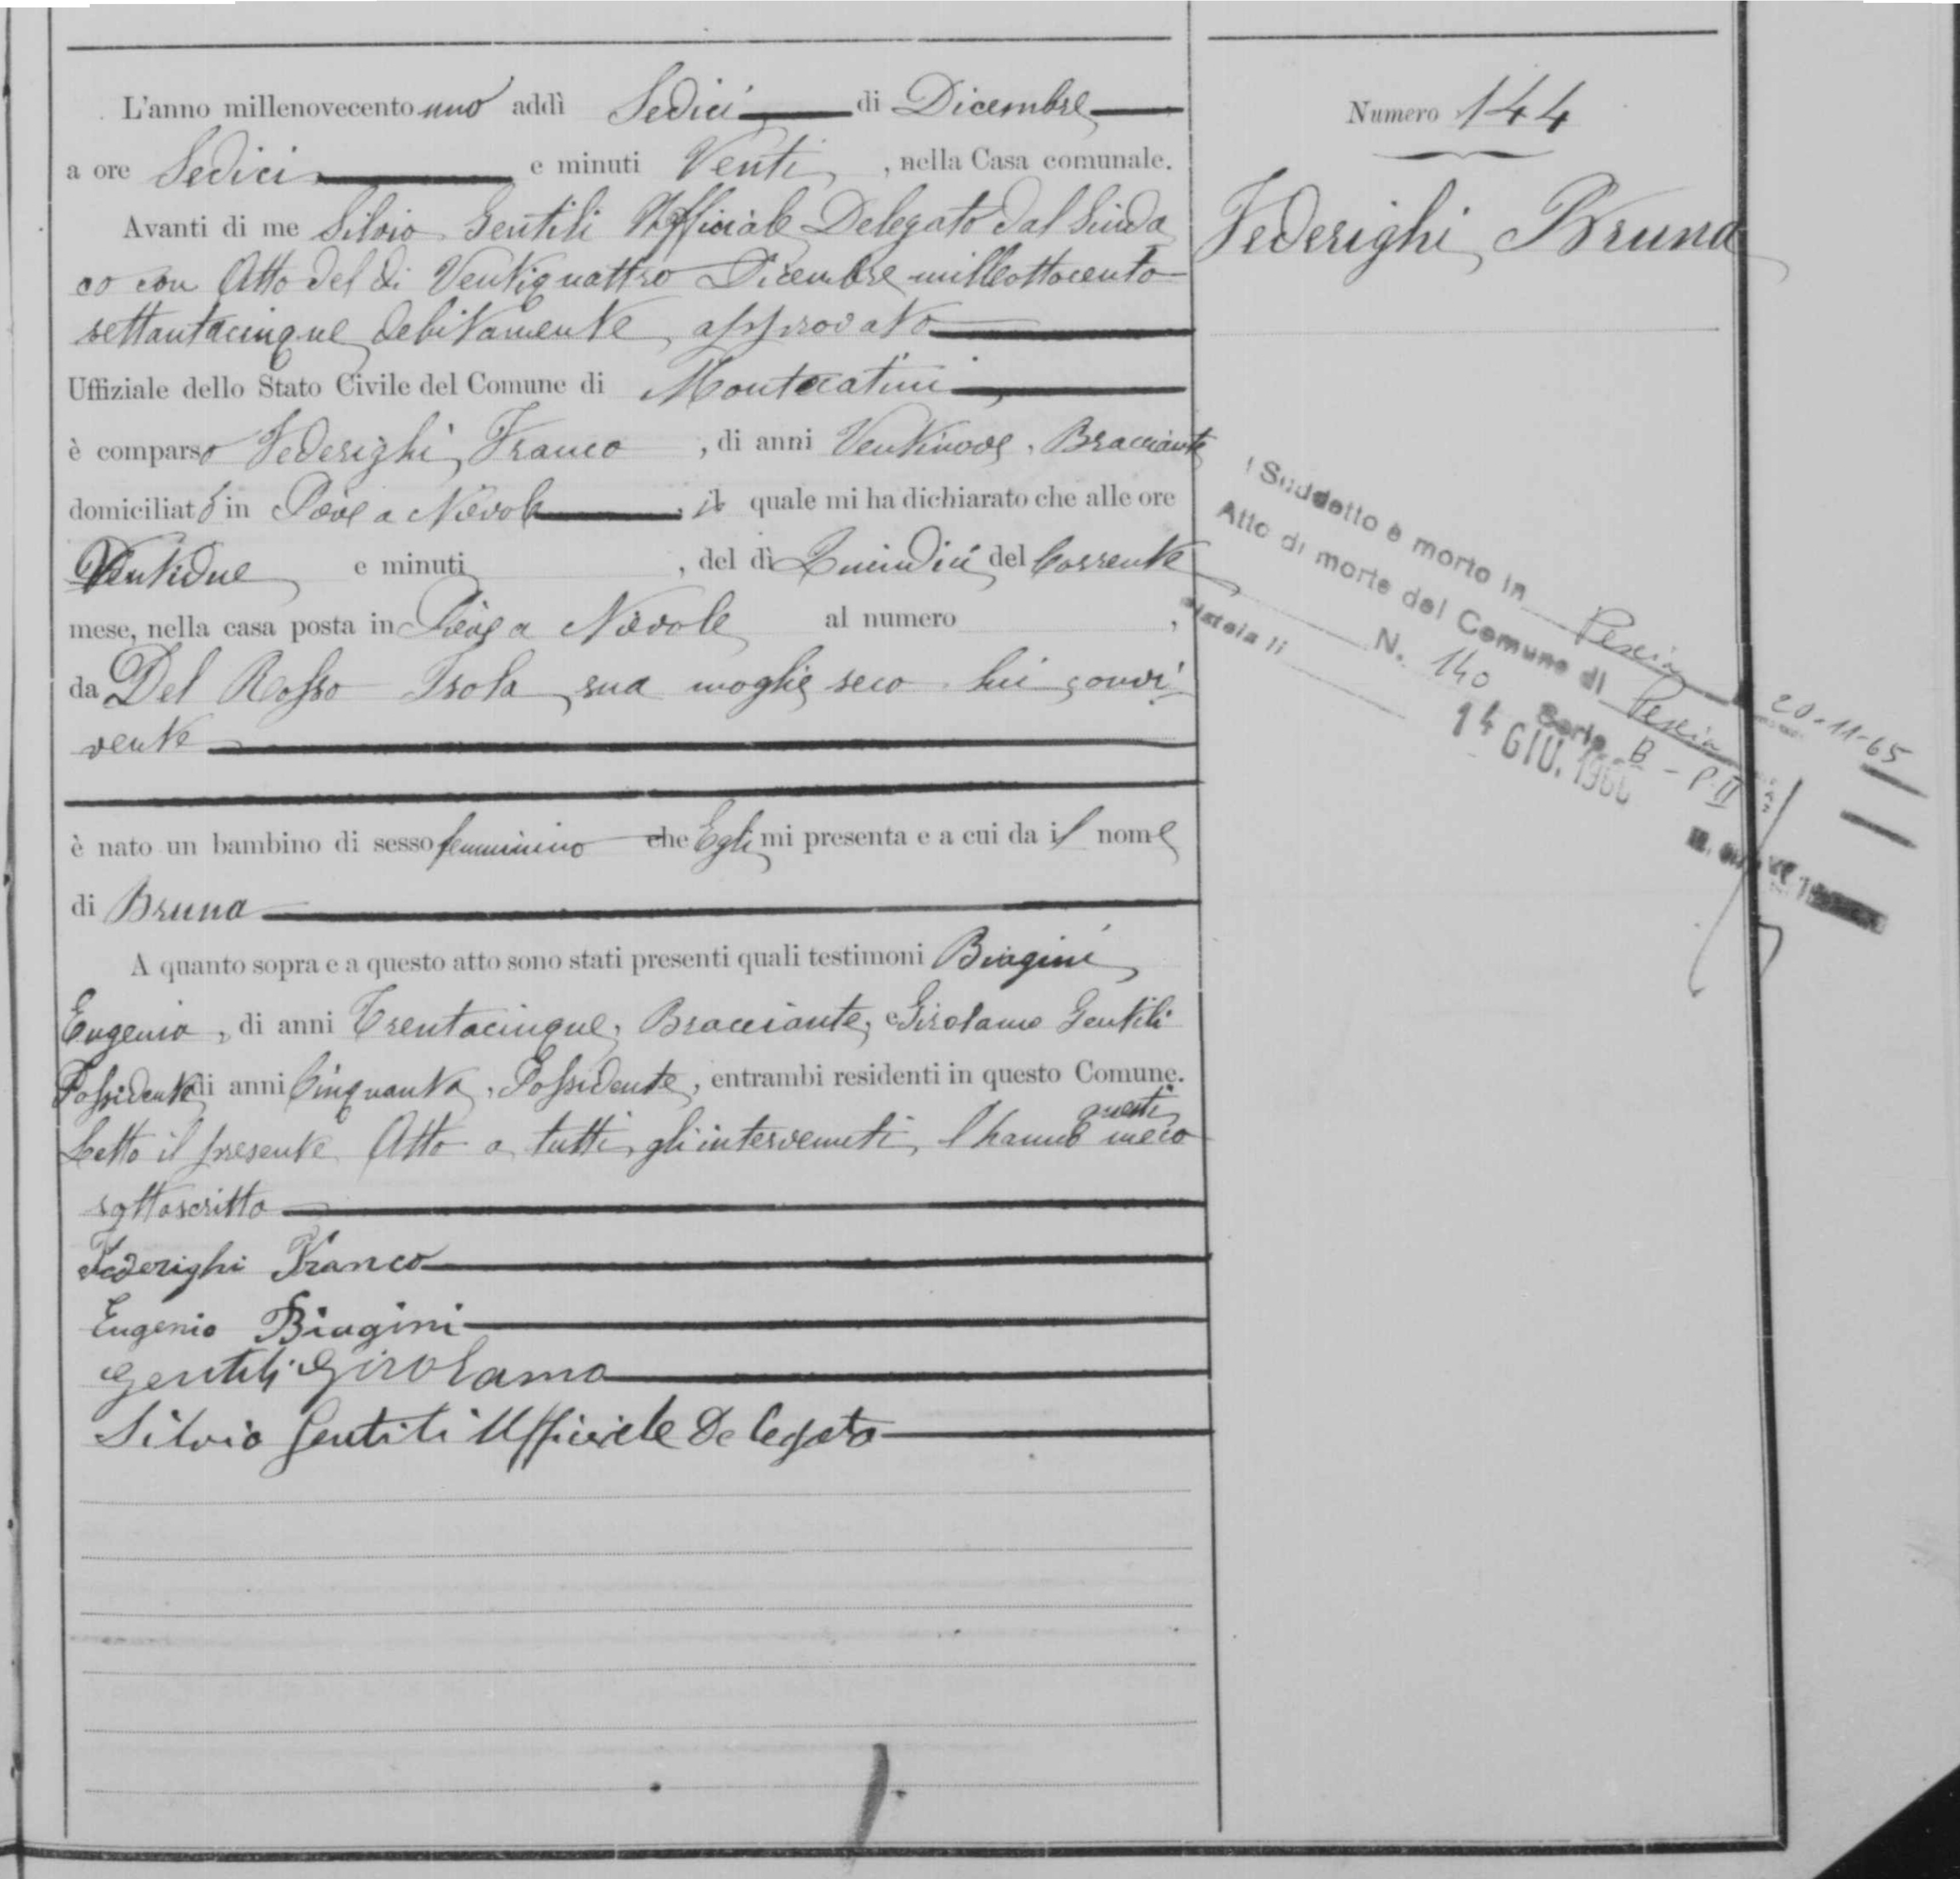 L'anno millenovecento uno addì Sedici di Dicembre
a ore Sedici e minuti Venti, nella Casa comunale.
Avanti di me Silvio Gentili Ufficiale Delegato dal Sinda
co con Atto del di Ventiquattro Dicembre milleottocento
settantacinque debitamente approvato
Uffiziale dello Stato Civile del Comune di Montecatini
è comparso Federighi Franco, di anni Ventinove, Bracciante
domiciliato in Pieve a Nievole, il quale mi ha dichiarato che alle ore
Ventidue e minuti , del dì Quindici del Corrente
mese, nella casa posta in Pieve a Nievole al numero ,
da Del Rosso Isola sua moglie seco lui convi
vente
è nato un bambino di sesso femminino che Egli mi presenta e a cui da il nome
di Bruna
A quanto sopra e a questo atto sono stati presenti quali testimoni Biagini
Eugenio, di anni Trentacinque, Bracciante, e Girolamo Gentili
Possidente di anni Cinquanta, Possidente, entrambi residenti in questo Comune.
Letto il presente Atto a tutti gli intervenuti, l'hanno questi meco
sottoscritto
Federighi Franco
Eugenio Biagini
Gentili Girolamo
Silvio Gentili Ufficiale Delegato
Numero 144
Federighi Bruna
l Suddetto è morto in Pescia 20-11-65
Atto di morte del Comune di Pescia
N. 140 Serie B - P. II
Pistoia li 14 GIU. 1966